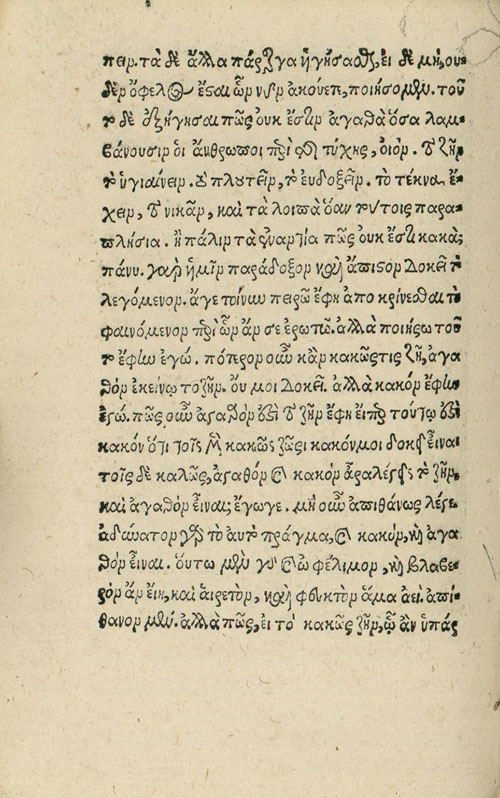 πειν. τὰ δὲ ἄλλα πάρεργα ἡγήσασθαι, εἰ δὲ μὴ, ου-
δὲν ὄφελος ἔσται ὧν νῦν ἀκούεις, ποιήσομεν. τοῦ
το δὲ ἐξήγησαι πῶς ὀυκ ἔστιν ἀγαθὰ ὅσα λαμ-
βάνουσιν ὁι ἄνθρωποι παρὰ τῆς τύχης, οἱον. τὸ ζῆν
τὸ ὑγιαίνειν. τὸ πλουτεῖν, τὸ ευδοξεῖν. τὸ τέκνα ἔ-
χειν, τὸ νικᾶν, καὶ τὰ λοιπὰ ὅσα τούτοις παρα-
πλήσια. ἢ πάλιν τὰ ἐναντία πῶς ὀυκ ἔστι κακά;
πάνυ. γὰρ ἡμῖν παράδοξον καὶ ἄπιστον δοκεῖ τὸ
λεγόμενον. ἄγε τοίνυν πειρῶ ἔφη ἀποκρίνεσθαι τὸ
φαινόμενον περὶ ὧν ἄν σε ἐρωτῶ. ἀλλὰ ποιήσω τοῦ
το ἔφην ἐγώ. πότερον οὖν κἂν κακῶς τις ζῇ, ἀγα
θὸν ἐκείνῳ τὸ ζῆν. ὄυ μοι δοκεῖ. ἀλλὰ κακόν ἔφην
ἐγώ. πῶς οὖν ἀγαθὸν ἐστὶ τὸ ζῆν ἔφη εἴπερ τούτῳ ἐστὶ
κακόν ὅτι τοῖς μὲν κακῶς ζῶσι κακόν μοι δοκεῖ εἶναι
τοῖς δὲ καλῶς, ἀγαθόν καὶ κακὸν ἄρα λέγεις τὸ ζῆν,
καὶ ἀγαθὸν εἶναι; ἔγωγε. μὴ οὖν ἀπιθάνως λέγε
ἀδύνατον γὰρ τὸ αυτὸ πρᾶγμα, καὶ κακὸν, καὶ ἀγα
θὸν εἶναι. ὅυτω μὲν γὰρ καὶ ὠφέλιμον, καὶ βλαβε-
ρὸν ἂν εἴη, καὶ ἁιρετὸν, καὶ φευκτὸν ἅμα ἀεί. ἀπι-
θανον μὲν. ἀλλὰ πῶς, ει τὸ κακῶς ζῆν, ᾧ ἂν ὑπάρ